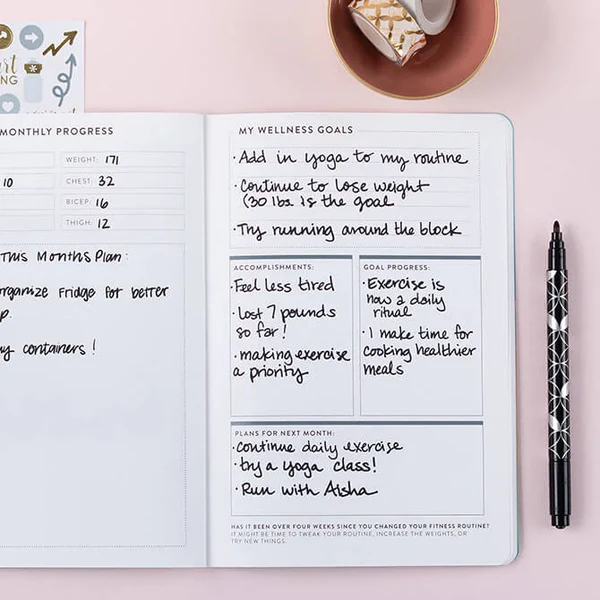 MONTHLY PROGRESS
WEIGHT: 171
10 CHEST: 32
BICEP: 16
THIGH: 12
This Month's Plan:
organize Fridge for better
containers!
MY WELLNESS GOALS
· Add in yoga to my routine
· Continue to lose weight
(30 lbs. is the goal
· Try running around the block
ACCOMPLISHMENTS:
· Feel less tired
· Lost 7 pounds
so far!
· making exercise
a priority
GOAL PROGRESS:
· Exercise is
now a daily
ritual
· I make time for
cooking healthier
meals
PLANS FOR NEXT MONTH:
· continue daily exercise
· try a yoga class!
· Run with Aisha
HAS IT BEEN OVER FOUR WEEKS SINCE YOU CHANGED YOUR FITNESS ROUTINE?
IT MIGHT BE TIME TO TWEAK YOUR ROUTINE, INCREASE THE WEIGHTS, OR
TRY NEW THINGS.